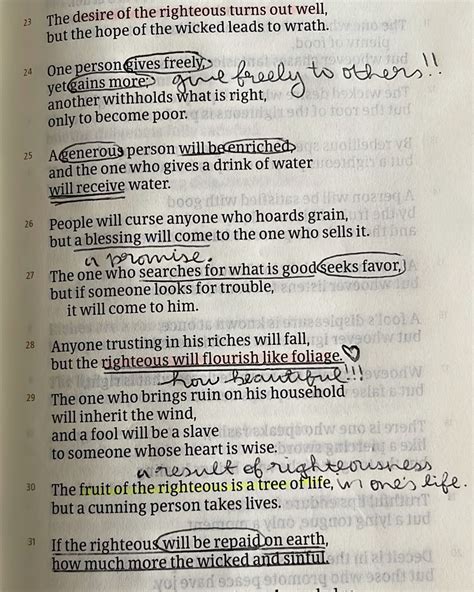 23 The desire of the righteous turns out well,
but the hope of the wicked leads to wrath.
24 One person gives freely,
yet gains more; give freely to others!!
another withholds what is right,
only to become poor.
25 A generous person will be enriched,
and the one who gives a drink of water
will receive water.
26 People will curse anyone who hoards grain,
but a blessing will come to the one who sells it.
a promise.
27 The one who searches for what is good seeks favor,
but if someone looks for trouble,
it will come to him.
28 Anyone trusting in his riches will fall,
but the righteous will flourish like foliage. ♡
how beautiful!!!
29 The one who brings ruin on his household
will inherit the wind,
and a fool will be a slave
to someone whose heart is wise.
a result of righteousness
30 The fruit of the righteous is a tree of life, in one's life.
but a cunning person takes lives.
31 If the righteous will be repaid on earth,
how much more the wicked and sinful.